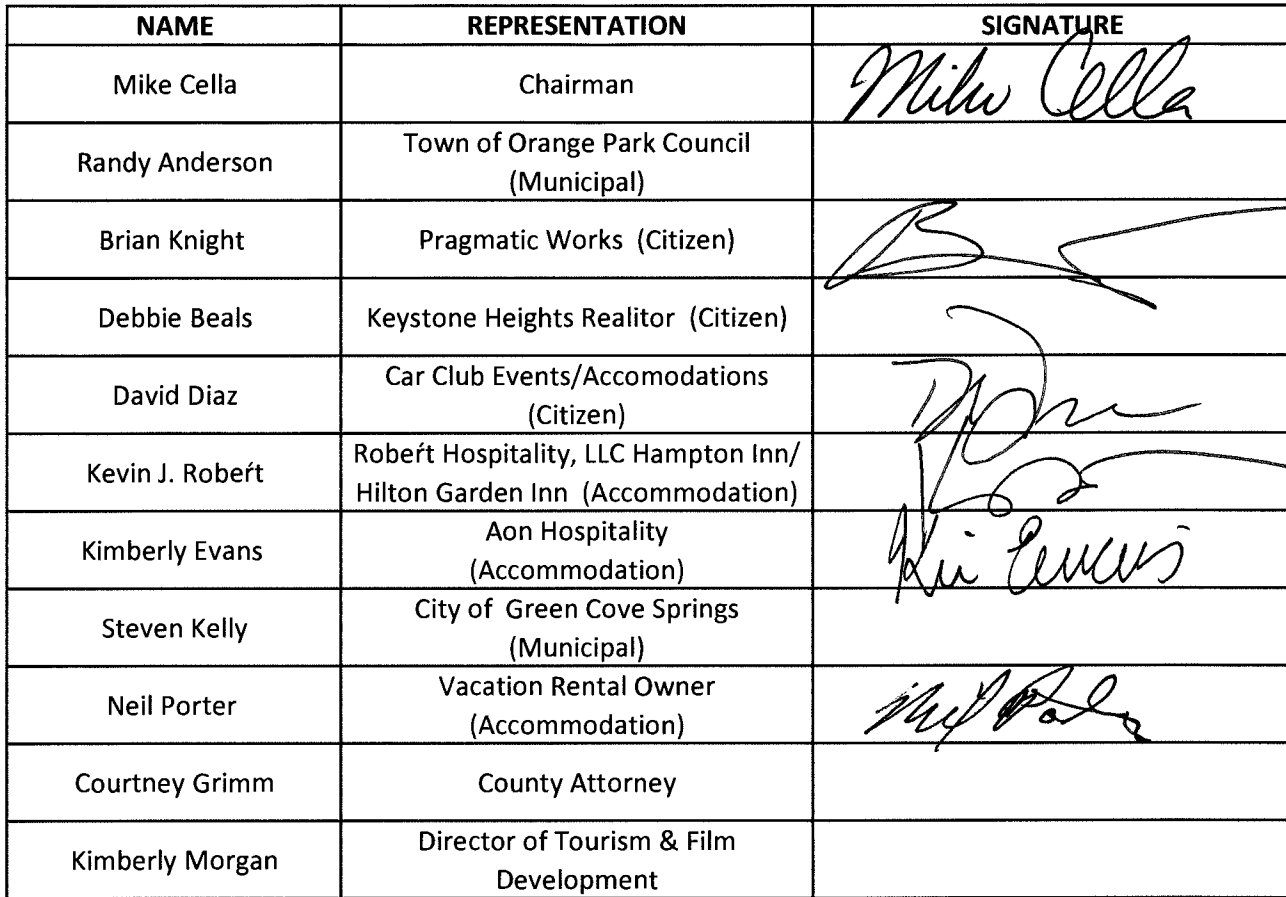 NAME REPRESENTATION SIGNATURE
Mike Cella Chairman Mike Cella
Randy Anderson Town of Orange Park Council
(Municipal)
Brian Knight Pragmatic Works (Citizen)
Debbie Beals Keystone Heights Realitor (Citizen)
David Diaz Car Club Events/Accomodations
(Citizen)
Kevin J. Robeŕt Robeŕt Hospitality, LLC Hampton Inn/
Hilton Garden Inn (Accommodation)
Kimberly Evans Aon Hospitality
(Accommodation) Kim Evans
Steven Kelly City of Green Cove Springs
(Municipal)
Neil Porter Vacation Rental Owner
(Accommodation)
Courtney Grimm County Attorney
Kimberly Morgan Director of Tourism & Film
Development